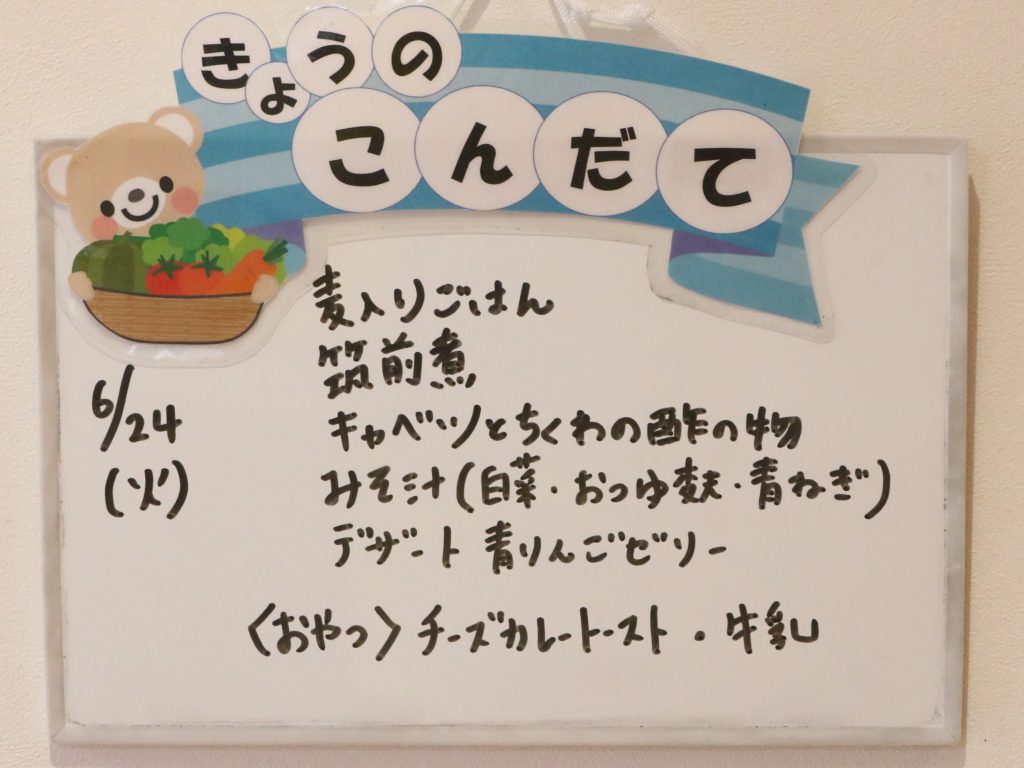 きょうの
こんだて
麦入りごはん
筑前煮
6/24
(火)
キャベツとちくわの酢の物
みそ汁(白菜・おつゆ麩・青ねぎ)
デザート 青りんごゼリー
〈おやつ〉チーズカレートースト・牛乳